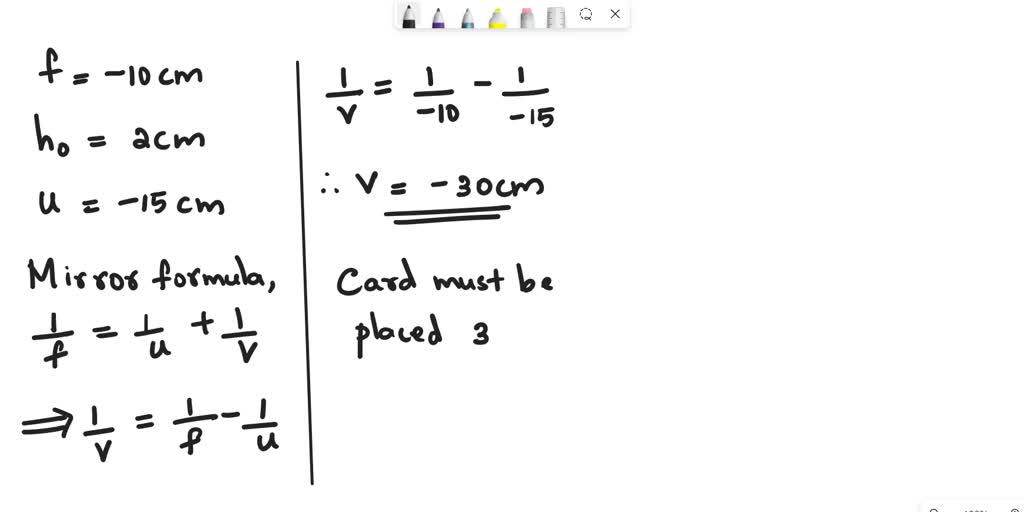 f = -10 cm
h₀ = 2cm
u = -15 cm
Mirror formula,
1/f = 1/u + 1/v
⇒ 1/v = 1/f - 1/u
1/v = 1/-10 - 1/-15
∴ v = -30cm
Card must be
placed 3